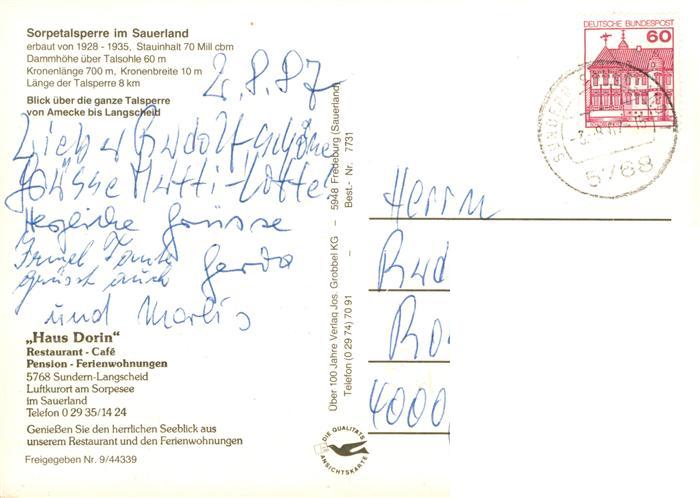 Sorpetalsperre im Sauerland
erbaut von 1928 - 1935, Stauinhalt 70 Mill cbm
Dammhöhe über Talsohle 60 m
Kronenlänge 700 m, Kronenbreite 10 m
Länge der Talsperre 8 km
Blick über die ganze Talsperre
von Amecke bis Langscheid
2.8.87
Lieber Rudolf schöne
Grüsse Mutti-Lotte
Herzliche Grüsse
Tante Gerda
grüsst auch
und Marlis
„Haus Dorin“
Restaurant - Café
Pension - Ferienwohnungen
5768 Sundern-Langscheid
Luftkurort am Sorpesee
im Sauerland
Telefon 0 29 35/14 24
Genießen Sie den herrlichen Seeblick aus
unserem Restaurant und den Ferienwohnungen
Freigegeben Nr. 9/44339
Über 100 Jahre Verlag Jos. Grobbel KG – 5948 Fredeburg (Sauerland)
Telefon (0 29 74) 70 91 – Best.- Nr. 7731
DIE QUALITÄTS
ANSICHTSKARTE
DEUTSCHE BUNDESPOST
60
SUNDERN
5768
Herrn
Rud
Ro
4000